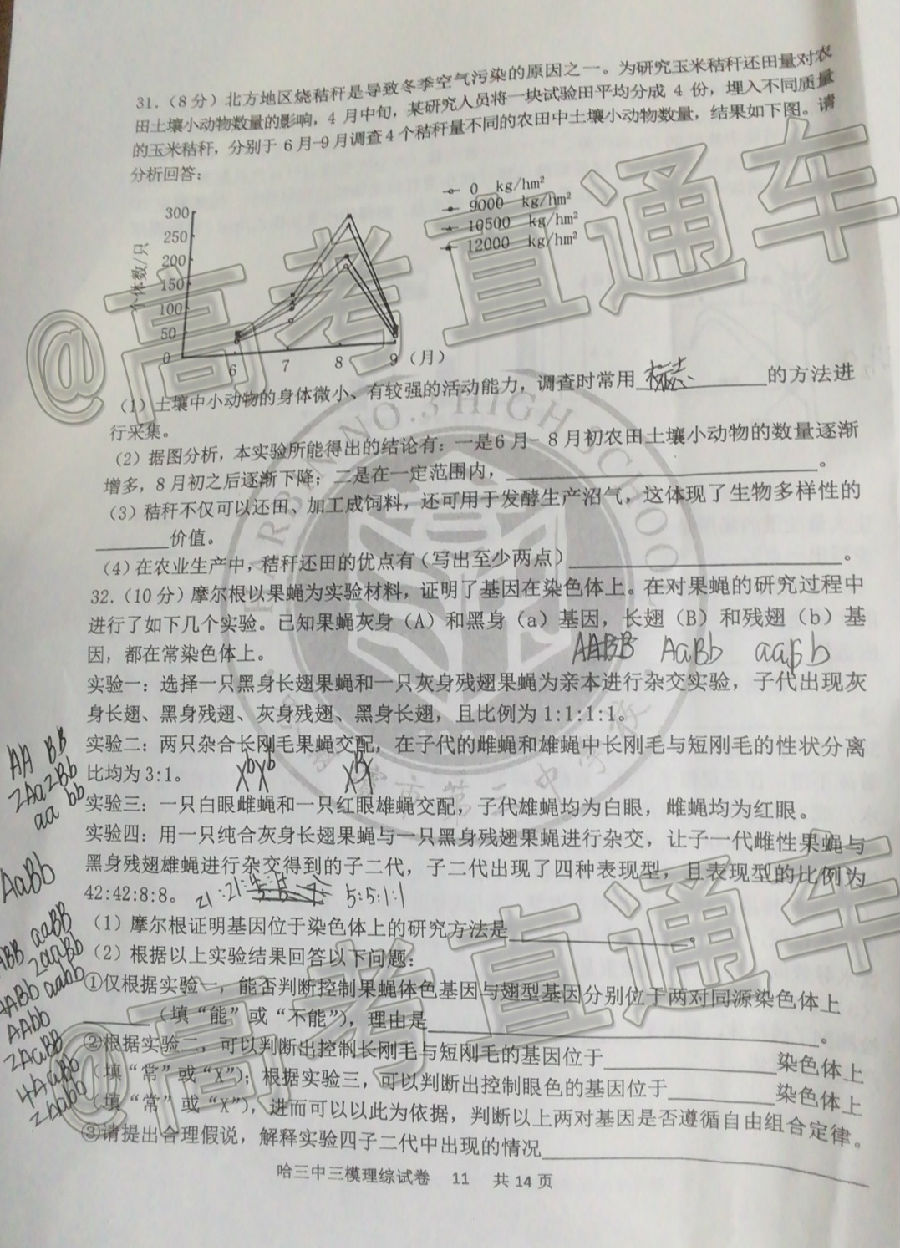 31.(8分)北方地区烧秸秆是导致冬季空气污染的原因之一。为研究玉米秸秆还田量对农
田土壤小动物数量的影响,4月中旬,某研究人员将一块试验田平均分成 4 份,埋入不同质量
的玉米秸秆,分别于6月-9月调查4个秸秆量不同的农田中土壤小动物数量,结果如下图。请
分析回答:
0 kg/hm²
9000 kg/hm²
10500 kg/hm²
12000 kg/hm²
个体数/只
300
250
200
150
100
50
0
6 7 8 9 (月)
(1)土壤中小动物的身体微小、有较强的活动能力,调查时常用 标志 的方法进
行采集。
(2)据图分析,本实验所能得出的结论有:一是6月-8月初农田土壤小动物的数量逐渐
增多,8月初之后逐渐下降;二是在一定范围内,____。
(3)秸秆不仅可以还田、加工成饲料,还可用于发酵生产沼气,这体现了生物多样性的
____价值。
(4)在农业生产中,秸秆还田的优点有(写出至少两点)____。
32.(10分)摩尔根以果蝇为实验材料,证明了基因在染色体上。在对果蝇的研究过程中
进行了如下几个实验。已知果蝇灰身(A)和黑身(a)基因,长翅(B)和残翅(b)基
因,都在常染色体上。
AABB AaBb aabb
实验一:选择一只黑身长翅果蝇和一只灰身残翅果蝇为亲本进行杂交实验,子代出现灰
身长翅、黑身残翅、灰身残翅、黑身长翅,且比例为1:1:1:1。
实验二:两只杂合长刚毛果蝇交配,在子代的雌蝇和雄蝇中长刚毛与短刚毛的性状分离
比均为3:1。
实验三:一只白眼雌蝇和一只红眼雄蝇交配,子代雄蝇均为白眼,雌蝇均为红眼。
实验四:用一只纯合灰身长翅果蝇与一只黑身残翅果蝇进行杂交,让子一代雌性果蝇与
黑身残翅雄蝇进行杂交得到的子二代,子二代出现了四种表现型,且表现型的比例为
42:42:8:8。 5:5:1:1
(1)摩尔根证明基因位于染色体上的研究方法是____。
(2)根据以上实验结果回答以下问题:
①仅根据实验一,能否判断控制果蝇体色基因与翅型基因分别位于两对同源染色体上
____(填“能”或“不能”),理由是____。
②根据实验二,可以判断出控制长刚毛与短刚毛的基因位于____染色体上
(填“常”或“X”);根据实验三,可以判断出控制眼色的基因位于____染色体上
(填“常”或“X”),进而可以以此为依据,判断以上两对基因是否遵循自由组合定律。
③请提出合理假说,解释实验四子二代中出现的情况____
哈三中三模理综试卷 11 共14页
AA BB
2Aa 2Bb
aa bb
AaBb
@高考直通车
@高考直通车
HARBIN NO.3 HIGH SCHOOL